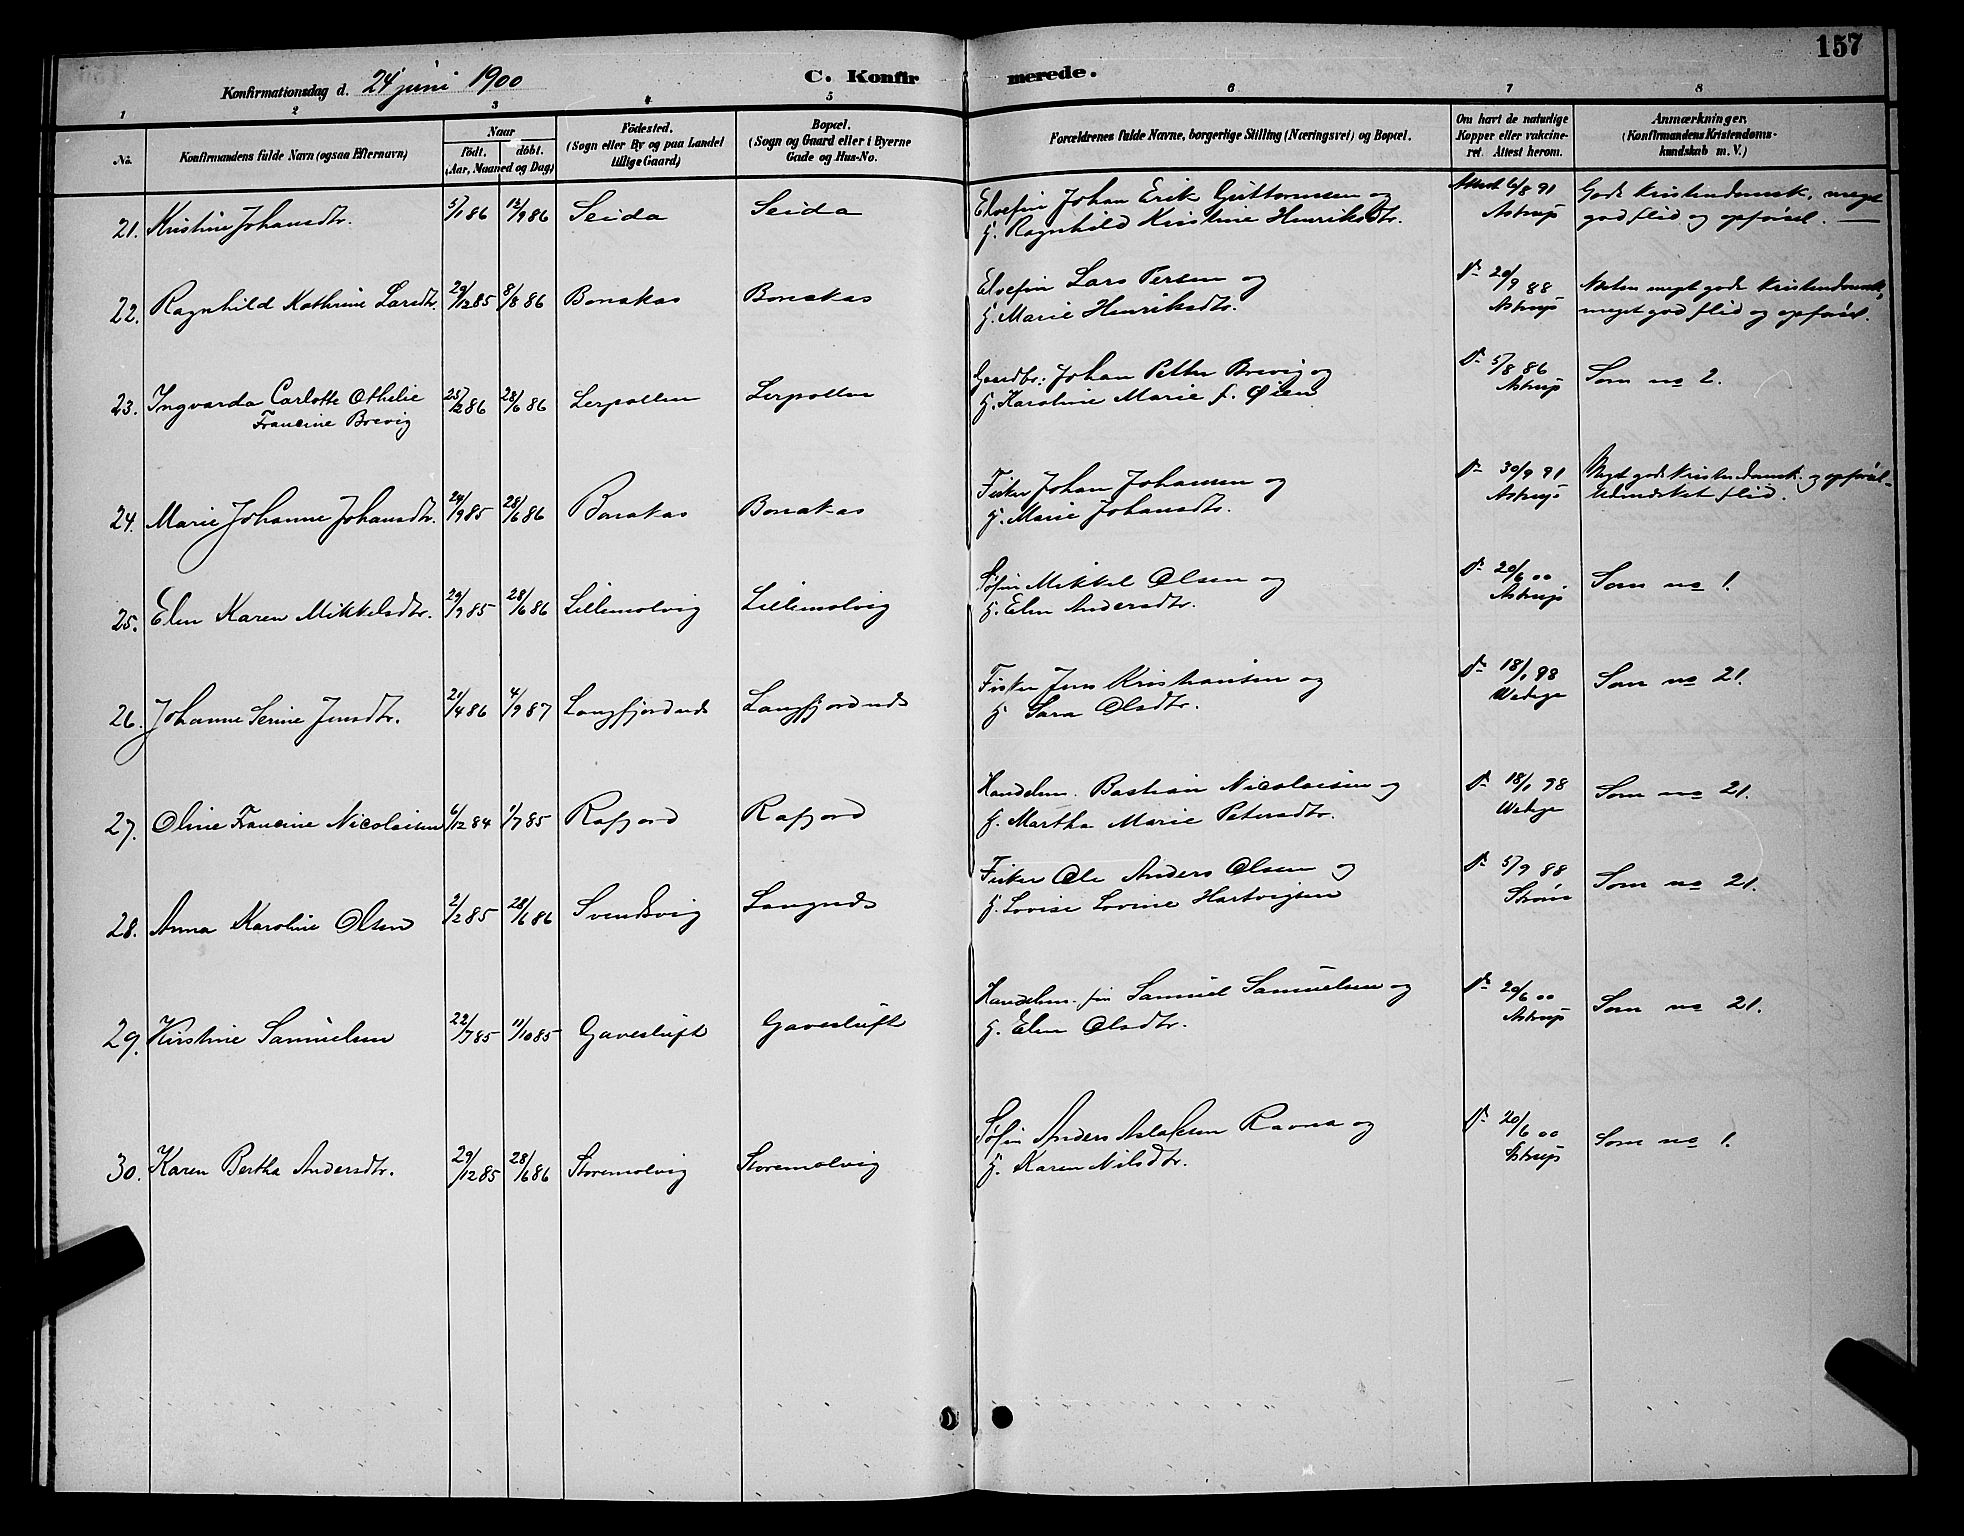 157
Konfirmationsdag d. 24 juni 1900
C. Konfirmerede.
1 2 3 4 5 6 7 8
No.
Konfirmandens fulde Navn (ogsaa Efternavn)
Naar
födt. döbt.
(Aar, Maaned og Dag)
Födested.
(Sogn eller By og paa Landet
tillige Gaard)
Bopæl.
(Sogn og Gaard eller i Byerne
Gade og Hus-No.
Forældrenes fulde Navne, borgerlige Stilling (Næringsvei) og Bopæl.
Om havt de naturlige
Kopper eller vakcine-
ret. Attest herom.
Anmærkninger.
(Konfirmandens Kristendoms-
kundskab m. V.)
21. Kristine Johansdtr. 5/1 86 12/9 86 Seida Seida
Elvefin Johan Erik Guttormsen og
H. Ragnhild Kristine Henriksdtr.
Attest 6/8 91
Astrup
Gode kristendomsk., meget
god flid og opførsel.
22. Ragnhild Kathrine Larsdtr. 29/12 85 8/8 86 Bonakas Bonakas
Elvefin Lars Persen og
H. Marie Henriksdtr.
Do 20/9 88
Astrup
Næsten meget gode kristendomsk.,
meget god flid og opførsel.
23. Ingvarda Carlotte Othelie
Francine Brevig
25/12 86 28/6 86 Lerpollen Lerpollen
Gaardbr: Johan Petter Brevig og
H. Karoline Marie f. Øien
Do 5/8 86
Astrup
Som no 2.
24. Marie Johanne Johansdtr. 29/9 85 28/6 86 Bonakas Bonakas
Fisker Johan Johansen og
H. Marie Johansdtr.
Do 30/9 91
Astrup
Meget gode kristendomsk. og opførsel.
Udmerket flid.
25. Elen Karen Mikkelsdtr. 29/9 85 28/6 86 Lillemolvig Lillemolvig
Søfin Mikkel Olsen og
H. Elen Andersdtr.
Do 20/6 00
Astrup
Som no 1.
26. Johanne Serine Jensdtr. 21/4 86 4/9 87 Langfjordnds Langfjordnds
Fisker Jens Kristiansen og
H. Sara Olsdtr.
Do 18/1 98
Wedege
Som no 21.
27. Oline Francine Nicolaisen 6/12 84 1/7 85 Rafjord Rafjord
Handelsm. Bastian Nicolaisen og
H. Martha Marie Petersdtr.
Do 18/1 98
Wedege
Som no 21.
28. Anna Karoline Olsen 2/2 85 28/6 86 Svendsvig Langnds
Fisker Ole Anders Olsen og
H. Lovise Lovine Hartvigsen
Do 5/9 88
Strøm
Som no 21.
29. Kirstine Samuelsen 22/7 85 11/10 85 Gavesluft Gavesluft
Handelsm. fin Samuel Samuelsen og
H. Elen Olsdtr.
Do 20/6 00
Astrup
Som no 21.
30. Karen Bertha Andersdtr. 29/12 85 28/6 86 Storemolvig Storemolvig
Søfin Anders Aslaksen Ravna og
H. Karen Nilsdtr.
Do 20/6 00
Astrup
Som no 1.